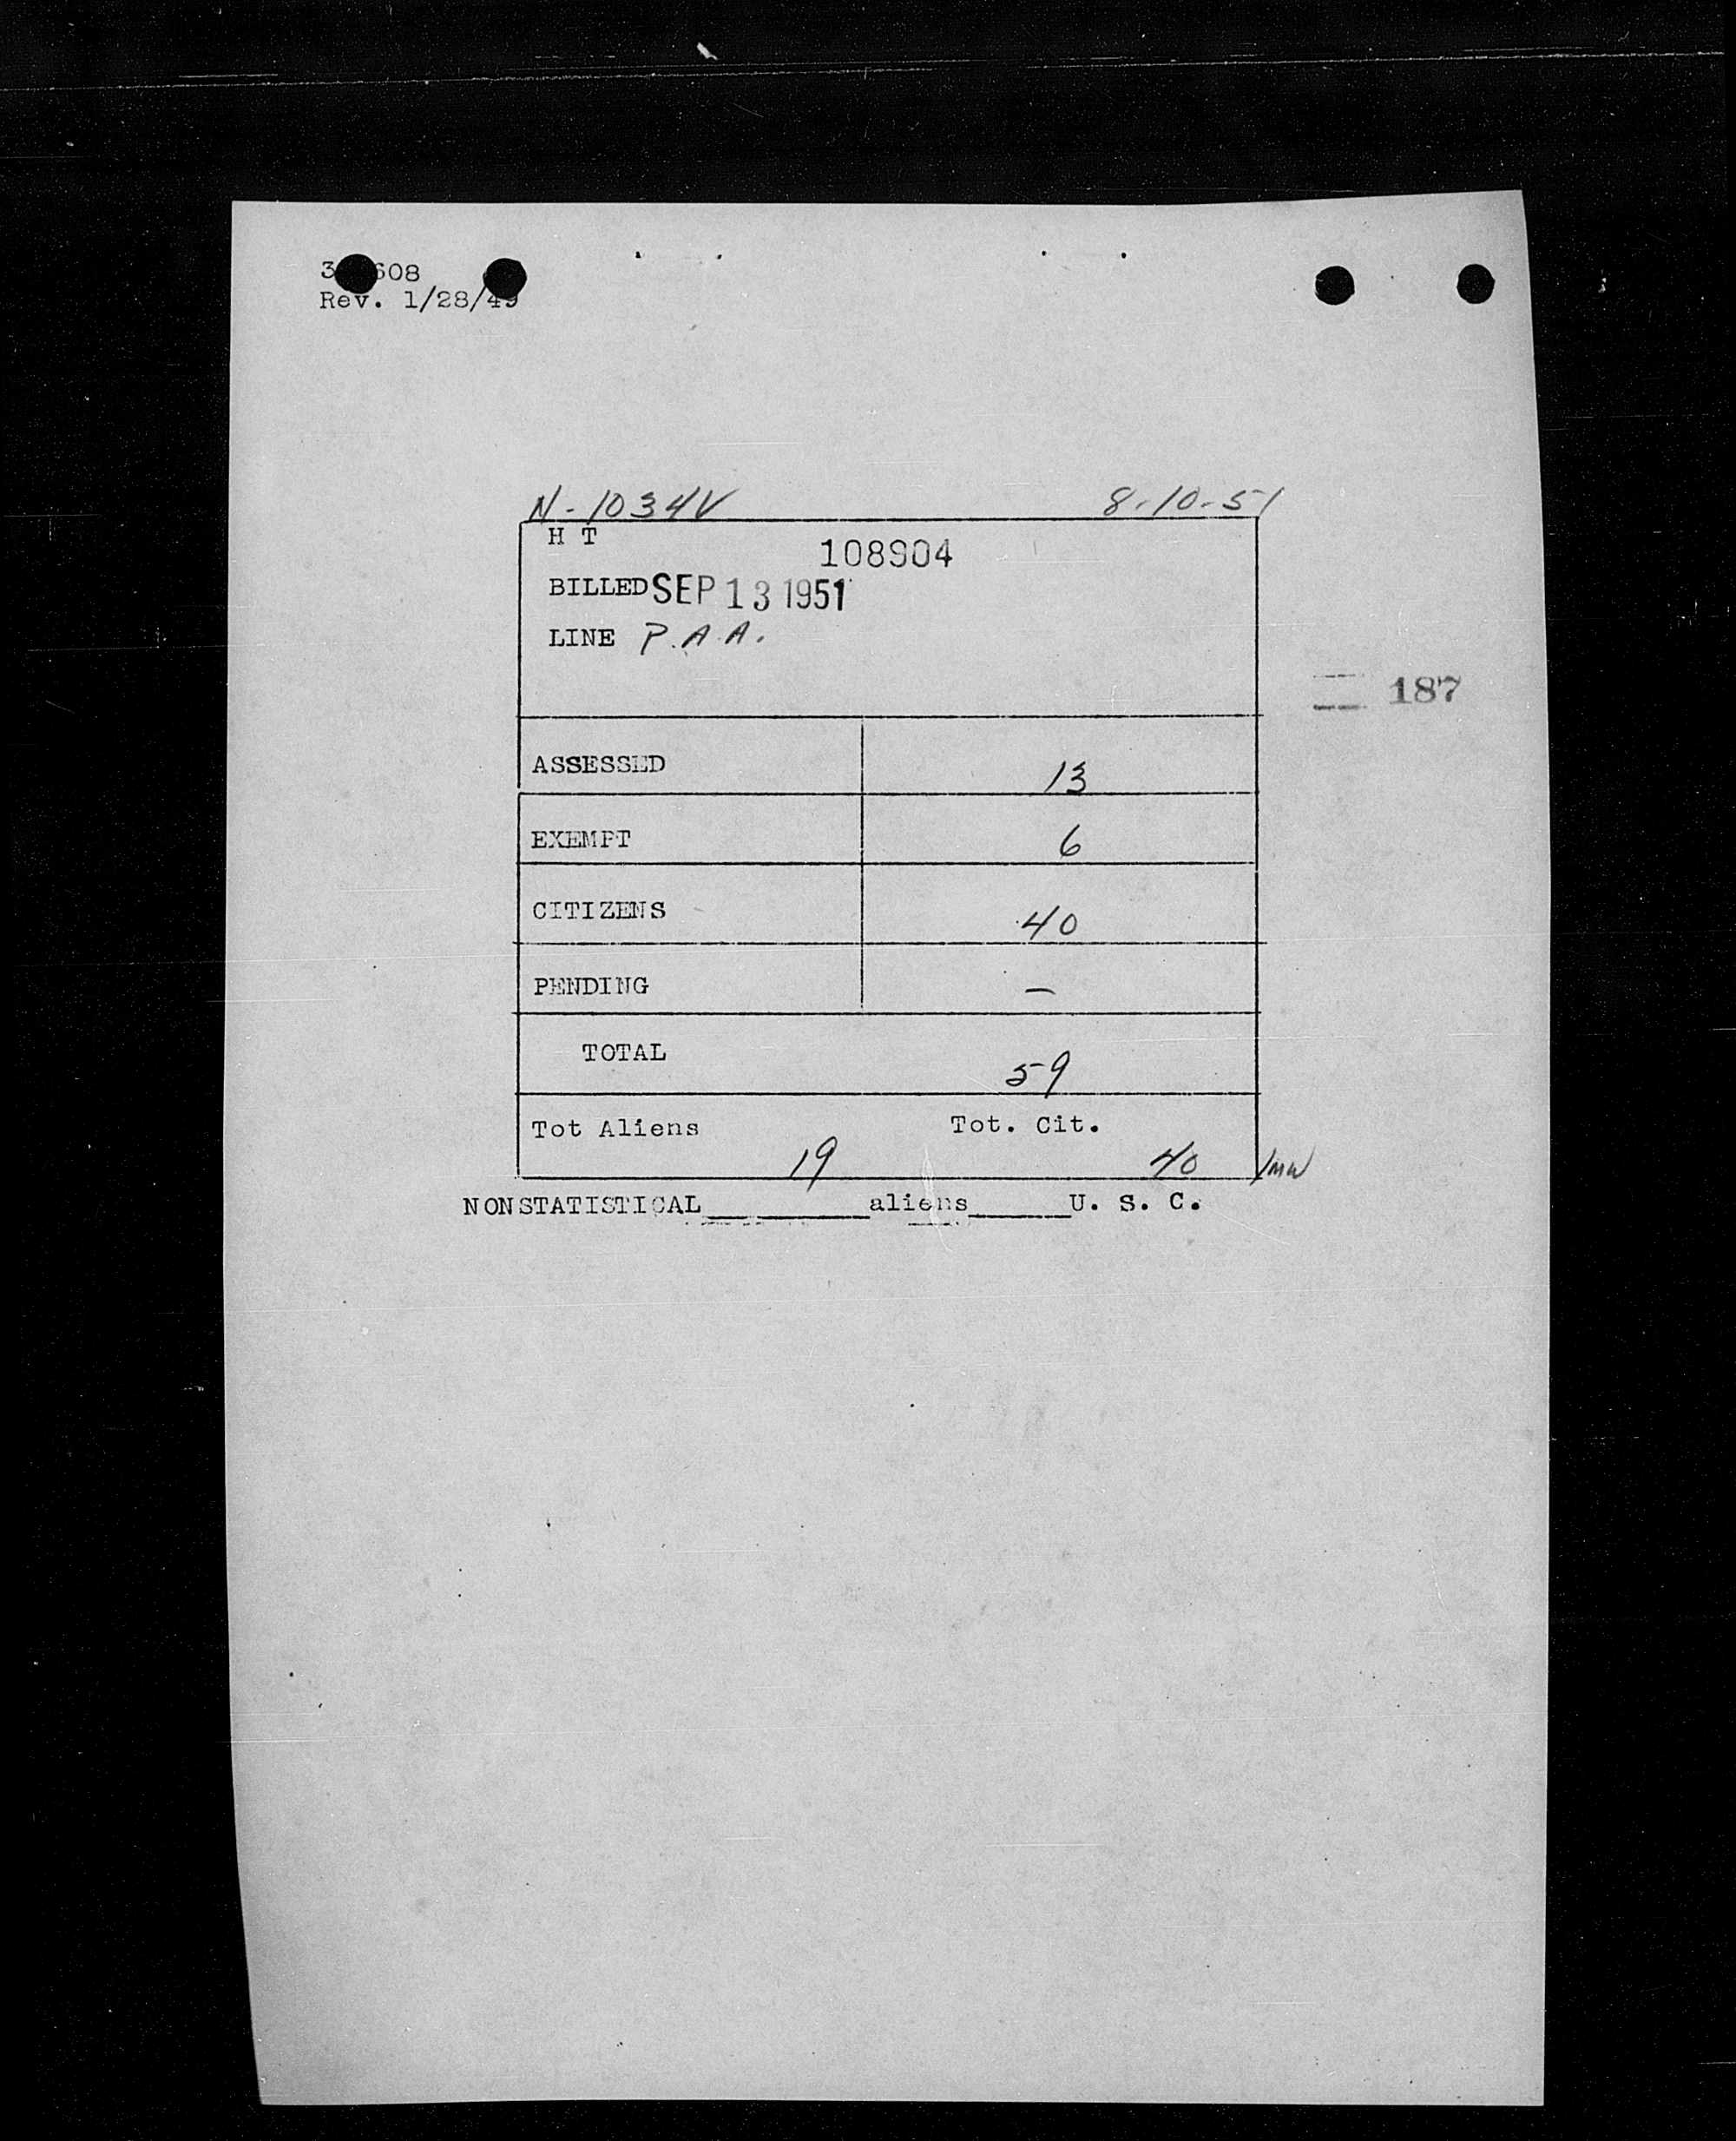 Rev. 1/28/49
N-1034V 8-10-51
H T
108904
BILLED SEP 13 1951
LINE P.A.A.
187
ASSESSED 13
EXEMPT 6
CITIZENS 40
PENDING —
TOTAL 59
Tot Aliens 19 Tot. Cit. 40
NONSTATISTICAL________aliens_____U. S. C.